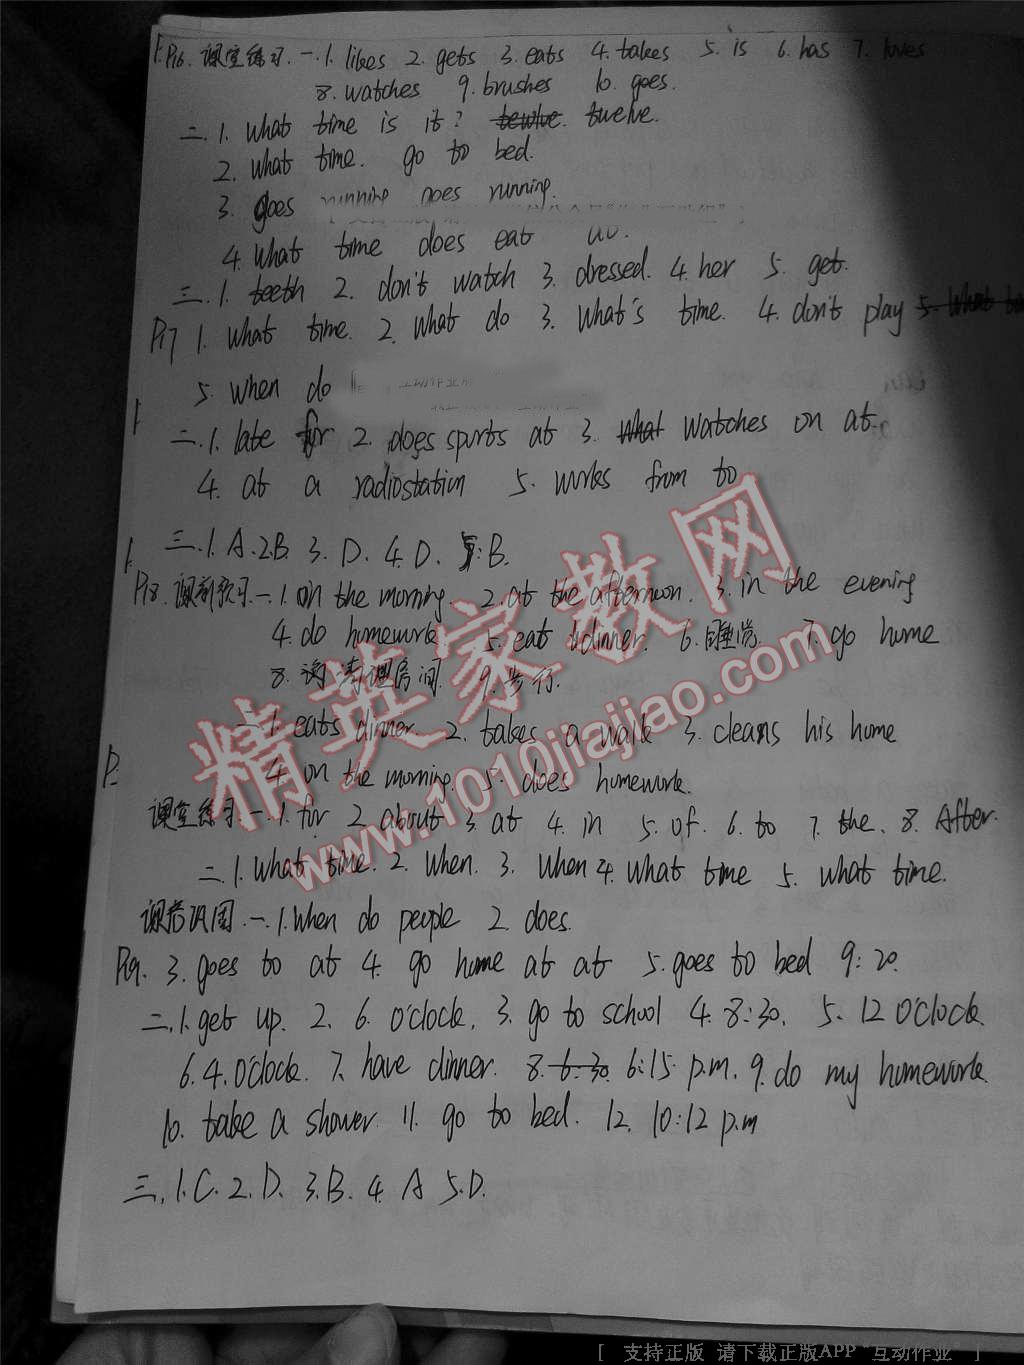 P16. 课堂练习. 一. 1. likes 2. gets 3. eats 4. takes 5. is 6. has 7. loves
8. watches 9. brushes 10. goes.
二. 1. What time is it? twelve.
2. What time. go to bed.
3. goes running goes running.
4. What time does eat
三. 1. teeth 2. don't watch 3. dressed. 4. her 5. get.
P17 1. What time. 2. What do 3. What's time. 4. don't play
5. When do
二. 1. late for 2. does sports at 3. watches on at
4. at a radiostation 5. works from to
三. 1. A. 2. B. 3. D. 4. D. 5. B.
P18. 课前预习. 一. 1. in the morning 2. at the afternoon. 3. in the evening
4. do homework 5. eat dinner. 6. 睡觉 7. go home
8. 清理房间. 9. 步行.
二. 1. eats dinner. 2. takes a walk 3. cleans his home
4. in the morning. 5. does homework.
课堂练习 一. 1. for 2. about 3. at 4. in 5. of. 6. to 7. the. 8. After.
二. 1. What time. 2. When. 3. When 4. What time 5. What time.
课后巩固. 一. 1. When do people 2. does.
P19. 3. goes to at 4. go home at at 5. goes to bed 9:20.
二. 1. get up. 2. 6. O'clock. 3. go to school 4. 8:30. 5. 12 O'clock
6. 4. O'clock. 7. have dinner. 8. 6:30 6:15 p.m. 9. do my homework.
10. take a shower 11. go to bed. 12. 10:12 p.m
三. 1. C. 2. D. 3. B. 4. A 5. D.
精英家教网
www.1010jiajiao.com
[ 支持正版 请下载正版APP "互动作业" ]